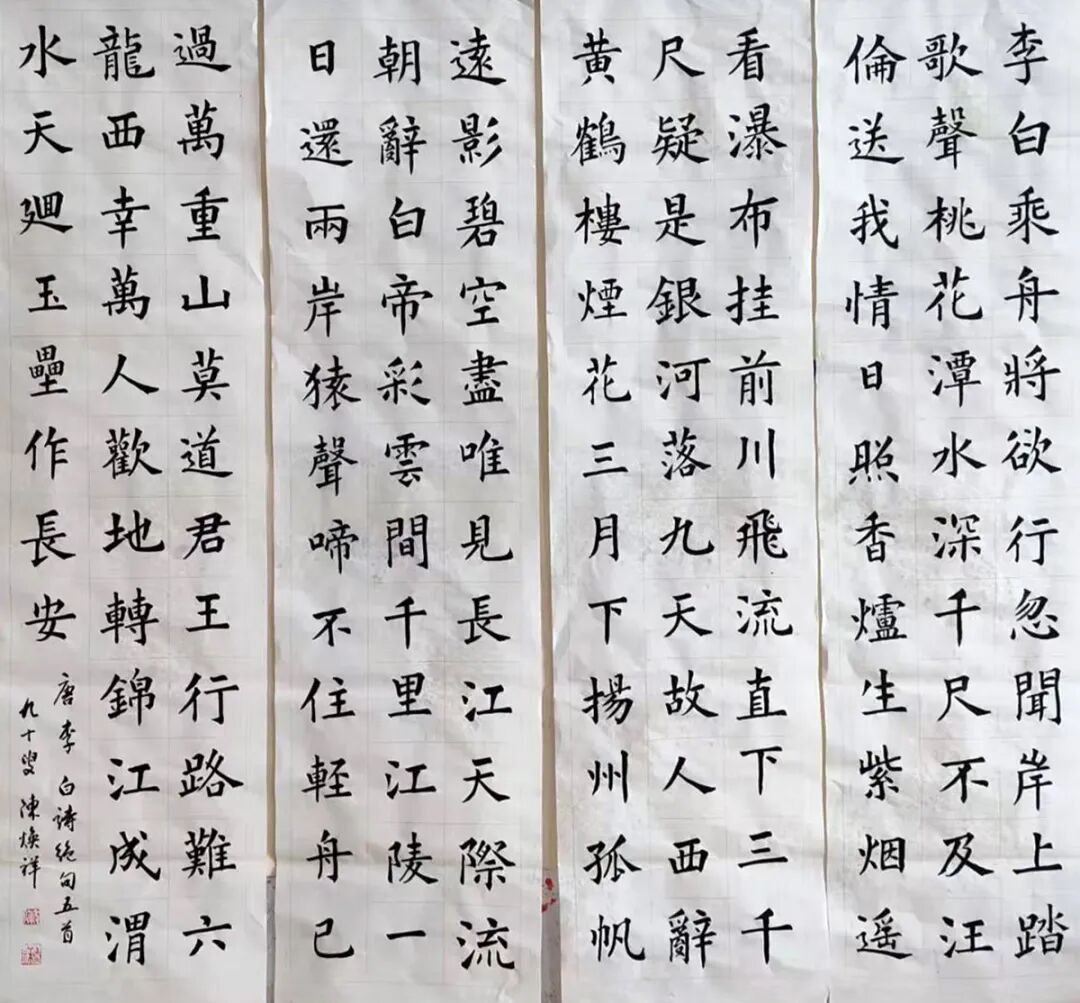 李白乘舟將欲行忽聞岸上踏
歌聲桃花潭水深千尺不及汪
倫送我情日照香爐生紫烟遥
看瀑布挂前川飛流直下三千
尺疑是銀河落九天故人西辭
黄鶴樓煙花三月下揚州孤帆
遠影碧空盡唯見長江天際流
朝辭白帝彩雲間千里江陵一
日還兩岸猿聲啼不住輕舟已
過萬重山莫道君王行路難六
龍西幸萬人歡地轉錦江成渭
水天廻玉壘作長安
唐李白詩絶句五首
九十叟陳焕祥